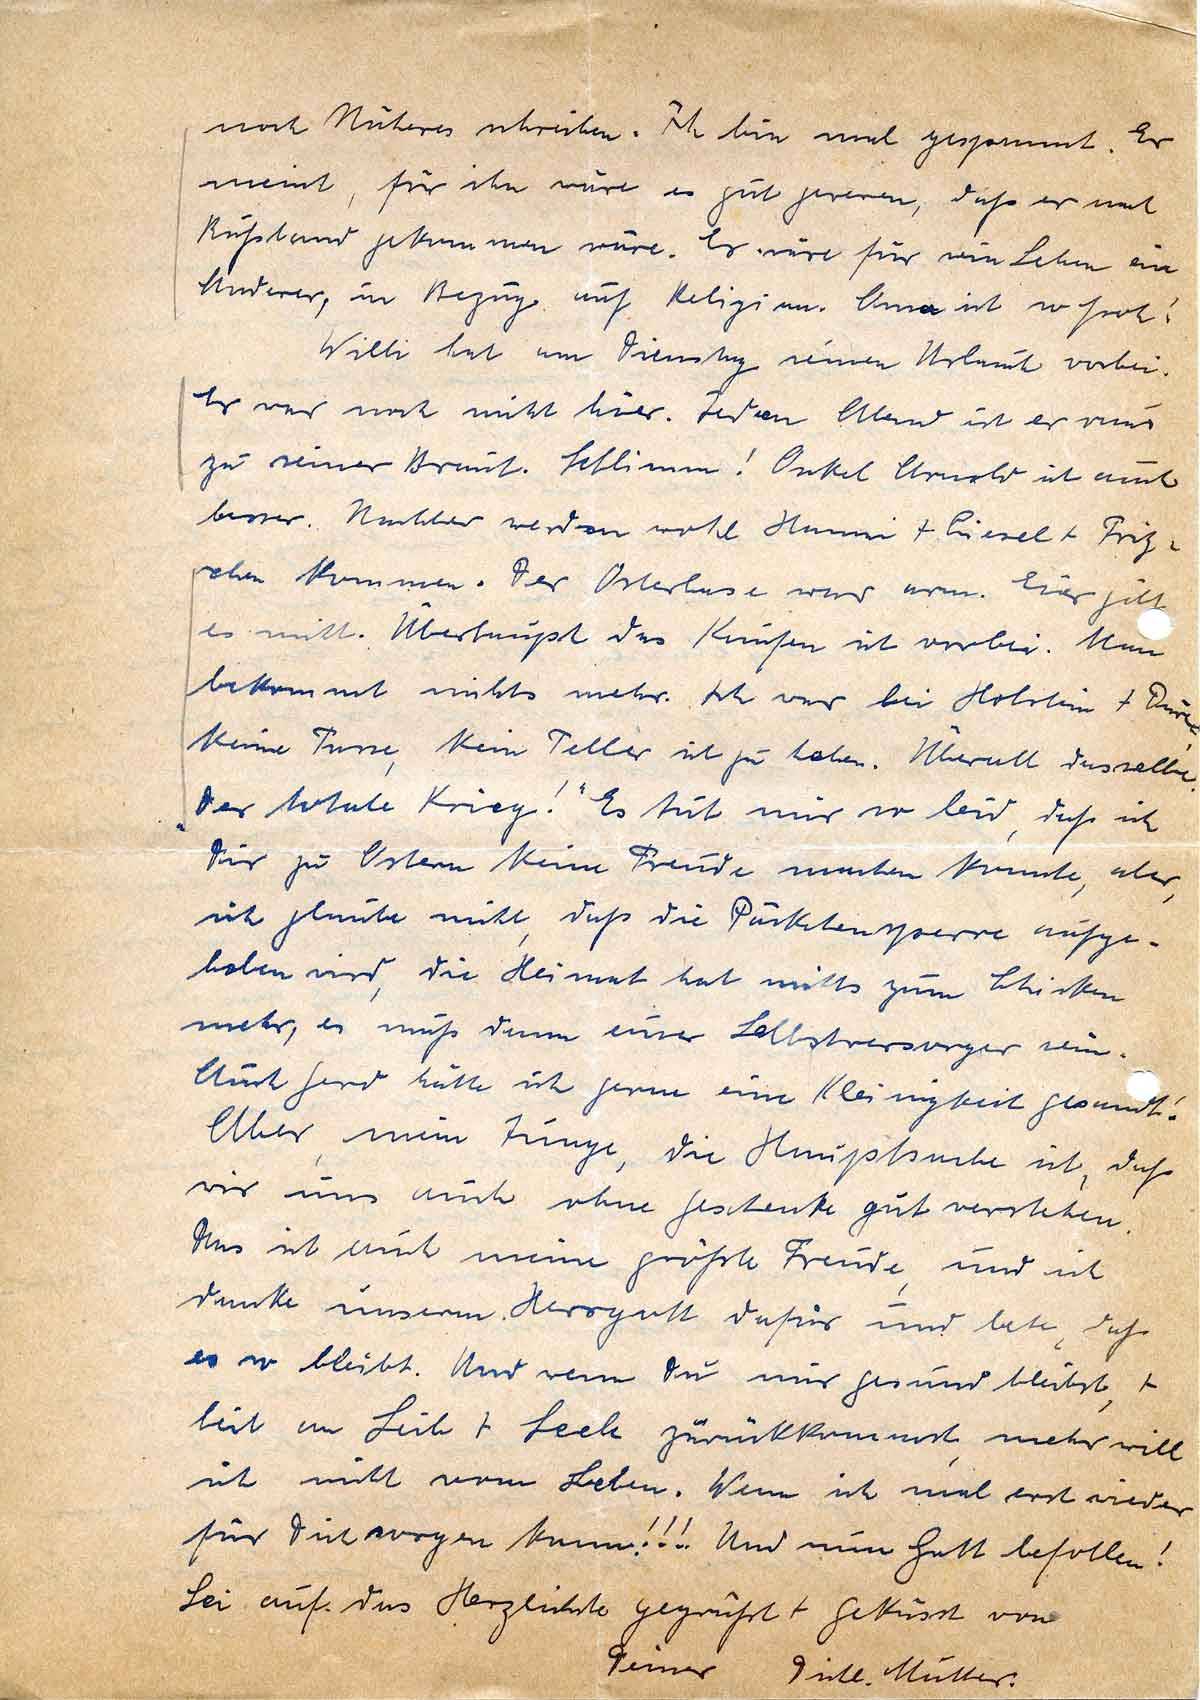 noch Näheres schreiben. Ich bin mal gespannt. Er
meint, für ihn wäre es gut gewesen, daß er nach
Rußland gekommen wäre. Er wäre für sein Leben ein
Anderer, in Bezug auf Religion. Anna ist so froh!
Willi hat am Dienstag seinen Urlaub vorbei.
Er war noch nicht hier. Jeden Abend ist er raus
zu seiner Braut. Schlimm! Onkel Arnold ist auch
besser. Nachher werden wohl Hanni + Liesel + Fritz-
chen kommen. Der Osterhase war arm. Eier gibt
es nicht. Überhaupt das Kaufen ist vorbei. Man
bekommt nichts mehr. Ich war bei Holstein +
Keine Tasse, kein Teller ist zu haben. Überall dasselbe.
„Der totale Krieg!“ Es tut mir so leid, daß ich
Dir zu Ostern keine Freude machen konnte, aber,
ich glaube nicht, daß die Päckchensperre aufge-
hoben wird, die Heimat hat nichts zum Schicken
mehr, es muß dann einer Selbstversorger sein.
Auch Gerd hätte ich gerne eine Kleinigkeit gesandt!
Aber, mein Junge, die Hauptsache ist, daß
wir uns auch ohne Geschenke gut verstehen.
Das ist auch meine größte Freude, und ich
danke unserem Herrgott dafür und bete, daß
es so bleibt. Und wenn Du mir gesund bleibst, +
heil an Leib + Seele zurückkommst, mehr will
ich nicht vom Leben. Wenn ich mal erst wieder
für Dich sorgen kann!!! Und nun Gott befohlen!
Sei auf das Herzlichste gegrüßt + geküsst von
Deiner Dichl. Mutter.